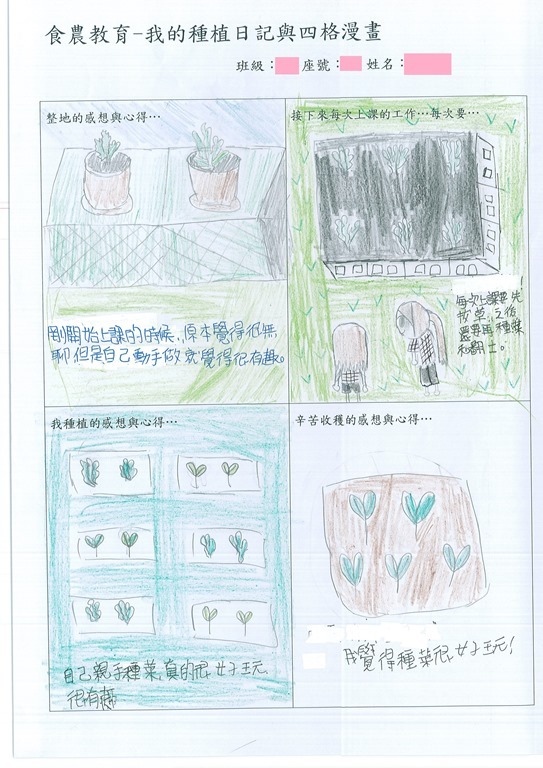 食農教育-我的種植日記與四格漫畫
班級： 座號： 姓名：
整地的感想與心得…
剛開始上課的時候，原本覺得很無
聊但是自己動手做就覺得很有趣。
接下來每次上課的工作…每次要…
每次上課要先
拔草，之後
還要再種菜
和翻土。
我種植的感想與心得…
自己親手種菜，真的很好玩、
很有趣
辛苦收穫的感想與心得…
我覺得種菜很好玩！